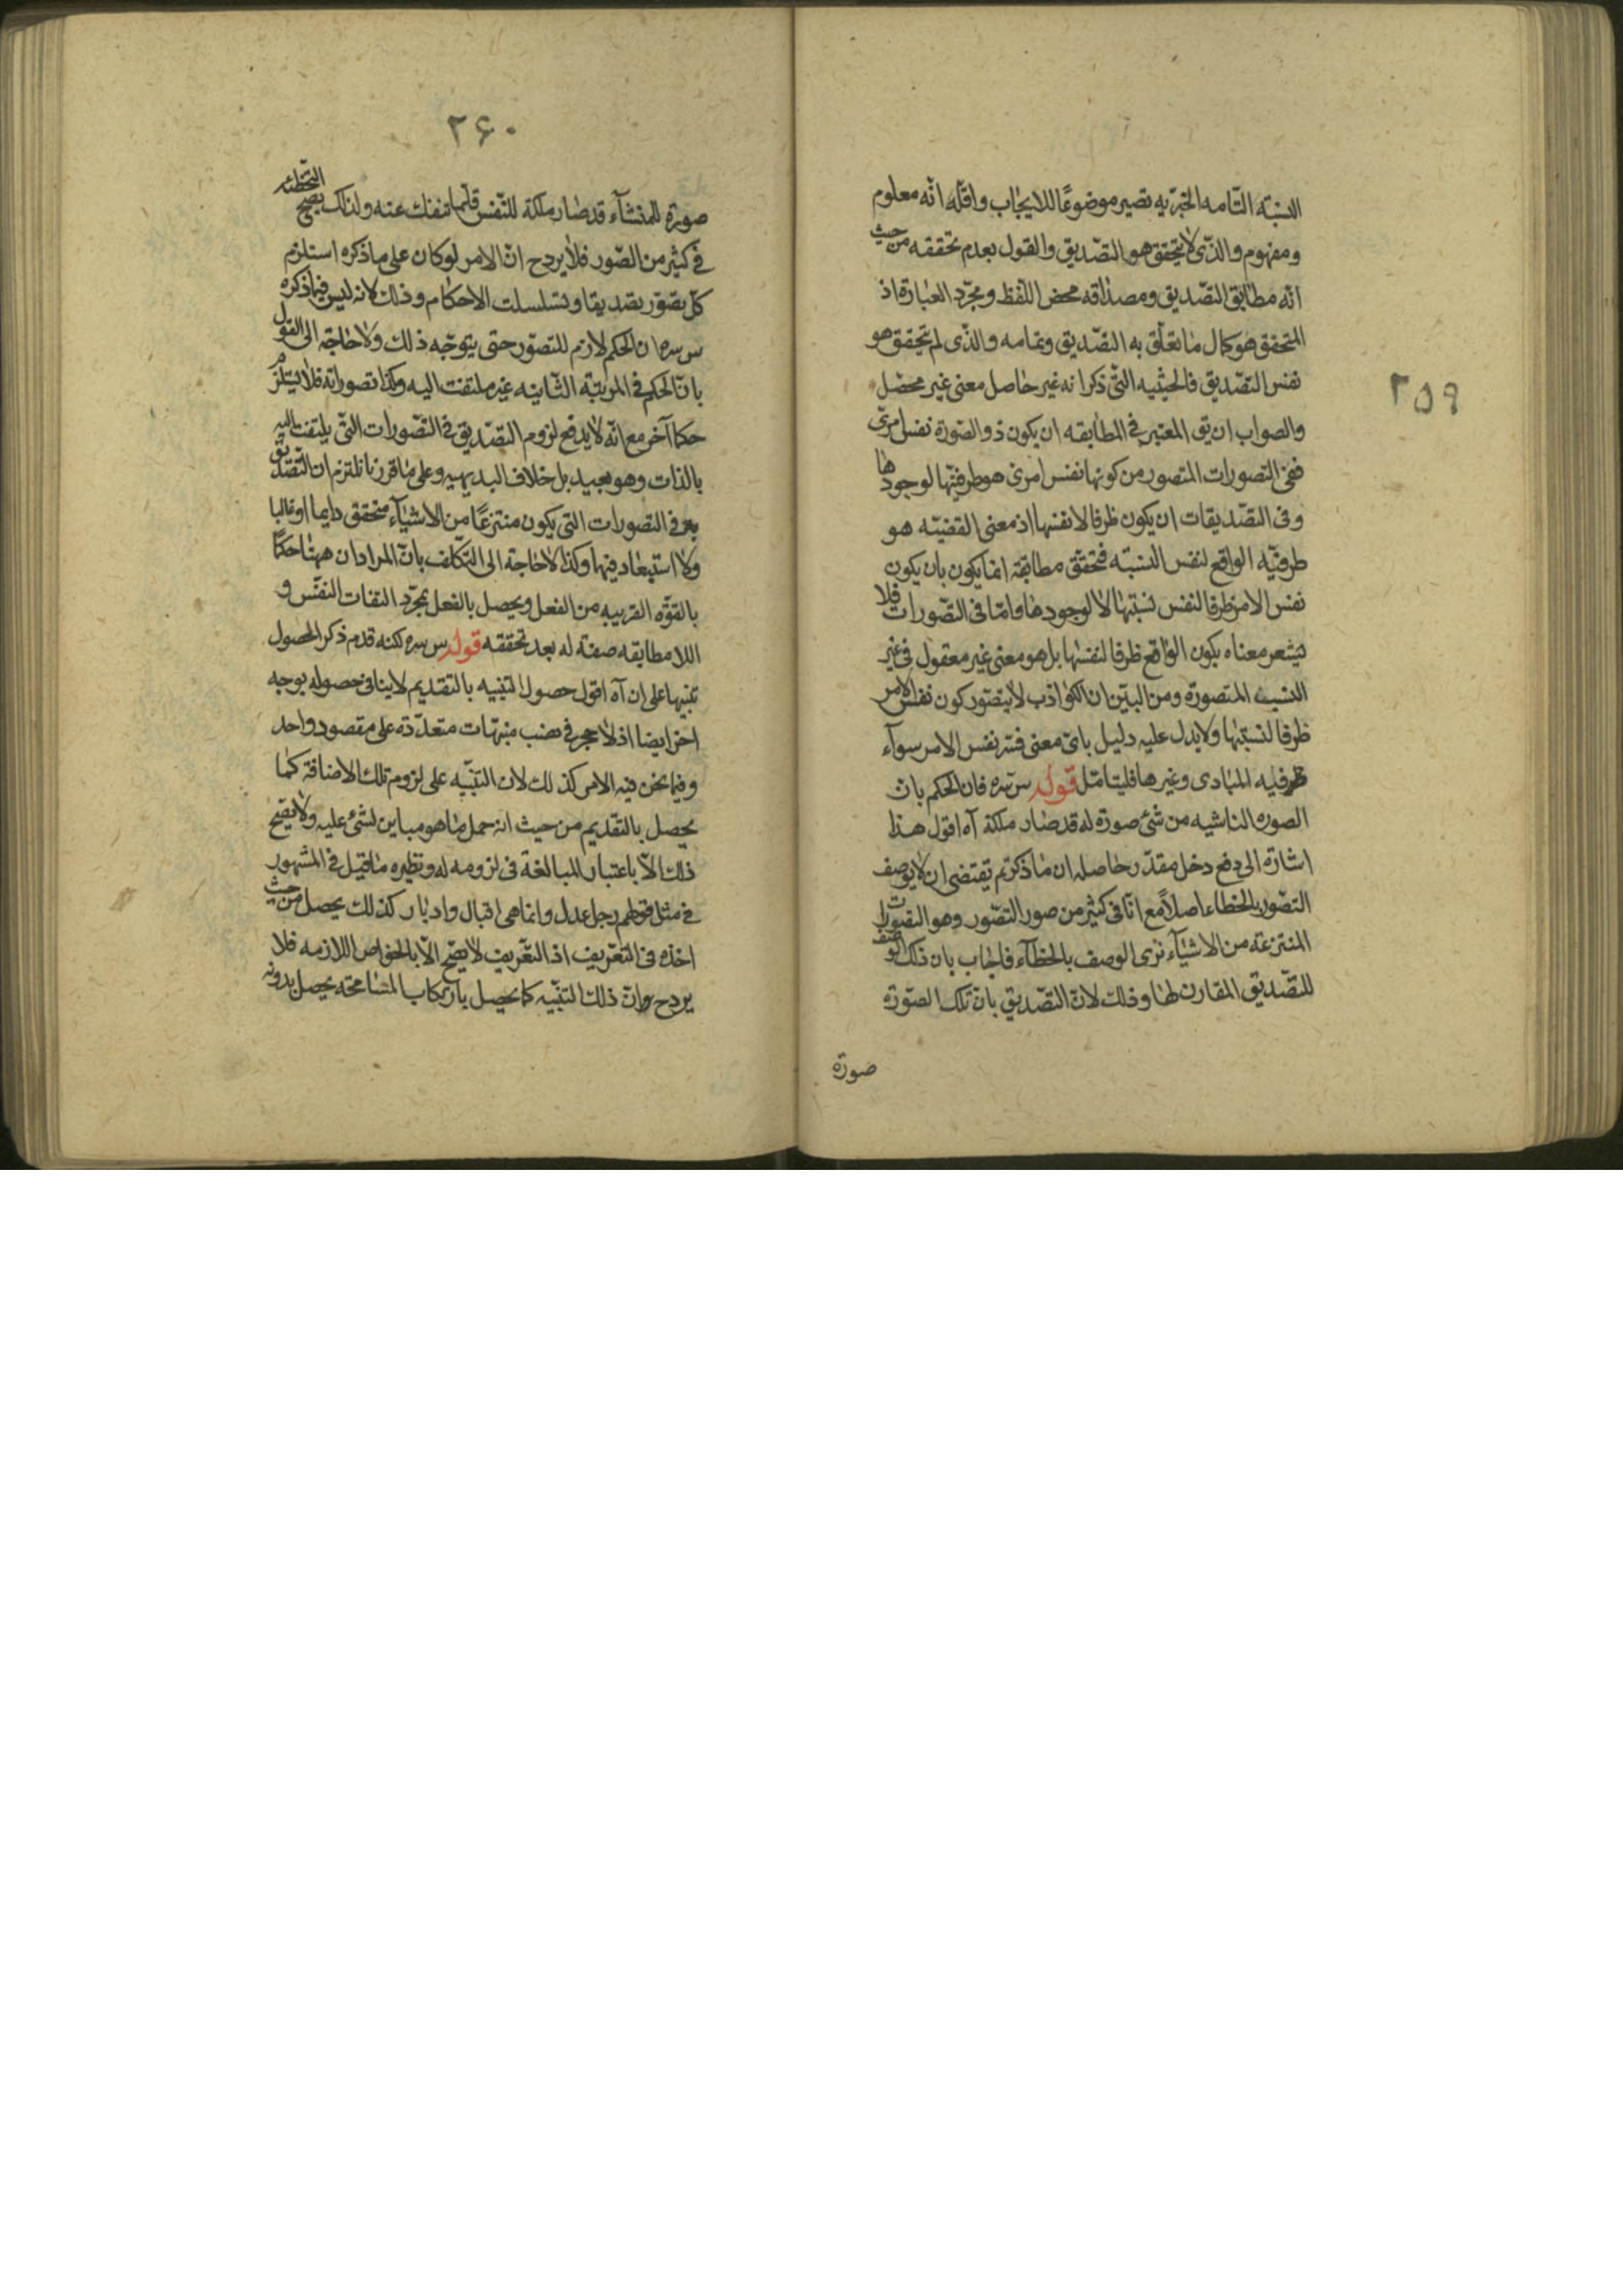 ٢٥٩
النسبة التامه الخبريه تصير موضوعًا للايجاب واقله انه معلوم
ومفهوم والذى لا يتحقق هو التصديق والقول بعدم تحققه من حيث
انه مطابق التصديق ومصداقه محض اللفظ ومجرد العبارة اذ
المتحقق هو كمال ما تعلق به التصديق وتمامه والذى لم يتحقق هو
نفس التصديق فالحيثيه التى ذكر انه غير حاصل معنى غير محصل
والصواب ان يق المعتبر فى المطابقه ان يكون ذو الصورة نفس امرى
ففى التصورات المتصور من كونها نفس امرى هو طرفيتها لوجودها
وفى التصديقات ان يكون ظرفا لانفسها اذ معنى القضيه هو
طرفيه الواقع لنفس النسبة فتحقق مطابقة انما يكون بان يكون
نفس الامر ظرفا لنفس نسبتها لا لوجودها واما فى التصورات فلا
يتشعر معناه بكون الواقع ظرفا لنفسها بل هو معنى غير معقول فى غير
النسب المتصورة ومن البين ان الكواذب لا يتصور كون نفس الامر
ظرفا لنسبتها ولا يدل عليه دليل باى معنى فسر نفس الامر سوآء
ظرفيه المبادى وغيرها فليتامل قوله س سره فان الحكم بان
الصوره الناشيه من شئ صورة له قد صار ملكة آه اقول هذا
اشارة الى دفع دخل مقدر حاصله ان ما ذكرتم يقتضى ان لا يوصف
التصور بالخطاء اصلاً مع انا فى كثير من صور التصور وهو التصورات
المنتزعة من الاشيآء نرى الوصف بالخطآء فاجاب بان ذلك الوصف
للتصديق المقارن لها وذلك لان التصديق بان تلك الصورة
صورة
٢۶٠
صورة للمنشآء قد صار ملكة للنفس قلما تنفك عنه ولذلك يصح التخطئه
فى كثير من الصور فلا يرد ح ان الامر لو كان على ما ذكره استلزم
كل تصور تصديقا وتسلسلت الاحكام وذلك لانه ليس فيما ذكره
س سره ان الحكم لازم للتصور حتى يتوجه ذلك ولا حاجة الى القول
بان الحكم فى المرتبة الثانيه غير ملتفت اليه وكذا تصوراته فلا يستلزم
حكما آخر مع انه لا يدفع لزوم التصديق فى التصورات التى يلتفت اليه
بالذات وهو بعيد بل خلاف البديهيه وعلى ما قررنا نلتزم ان التصديق
فى التصورات التى يكون منتزعًا من الاشيآء متحقق دايما او غالبا
ولا استبعاد فيها وكذا لا حاجة الى التكلف بان المراد ان ههنا حكمًا
بالقوه القريبه من الفعل ويحصل بالفعل بمجرد التفات النفس و
اللا مطابقه صفة له بعد تحققه قوله س سره لكنه قدم ذكر الحصول
تنبيها على ان آه اقول حصول التنبيه بالتقديم لا ينافى حصوله بوجه
اخر ايضا اذ لا حجر فى نصب منبهات متعددة على مقصود واحد
وفيما نحن فيه الامر كذلك لان التنبيه على لزوم تلك الاضافة كما
يحصل بالتقديم من حيث انه حمل ما هو مباين لشئ عليه ولا يصح
ذلك الا باعتبار المبالغة فى لزومه له ونظيره ما قيل فى المشهور
فى مثل قولهم رجل عدل وانما هى اقبال وادبار كذلك يحصل من حيث
اخذه فى التعريف اذ التعريف لا يصح الا بالخواص اللازمه فلا
يرد ح ان ذلك التنبيه كما يحصل بارتكاب المسامحة يحصل بدونه